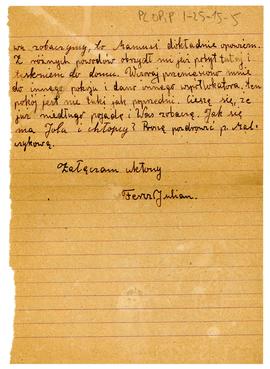 PL OPiP 1-25-15-5
wu zobaczymy, to Mamusi dokładnie opowiem.
Z różnych powodów obrzydł mi już pobyt tutaj i
tęsknię do domu. Wczoraj przeniesiono mnie
do innego pokoju i dano innego współlokatora. Ten
pokój jest nie taki jak poprzedni. Cieszę się, że
już niedługo pojadę i Was zobaczę. Jak się
ma Jola i chłopcy? Proszę pozdrowić p.
czykową.
Załączam ukłony
Julian.